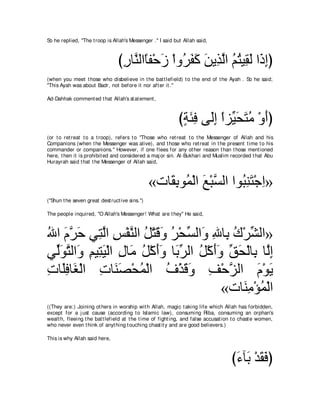 So he replied, "The troop is Allah's Messenger ." I said but Allah said,
﴿إِذَا لَقِيتُمُ الَّذِينَ كَفَرُواْ زَحْفًا فَلَا تُوَلُّوهُمُ الأَدْبَارَ﴾
(when you meet those who disbelieve in the battlefield) to the end of the Ayah . So he said; "This Ayah was about Badr, not before it nor after it."
Ad-Dahhak commented that Allah's statement,
﴿أَوْ مُتَحَيِّزًا إِلَى فِئَةٍ﴾
(or to retreat to a troop), refers to "Those who retreat to the Messenger of Allah and his Companions (when the Messenger was alive), and those who retreat in the present time to his commander or companions." However, if one flees for any other reason than those mentioned here, then it is prohibited and considered a major sin. Al-Bukhari and Muslim recorded that Abu Hurayrah said that the Messenger of Allah said,
«اجْتَنِبُوا السَّبْعَ الْمُوبِقَات»
("Shun the seven great destructive sins.")
The people inquired, "O Allah's Messenger! What are they" He said,
«الشِّرْكُ بِاللهِ، وَالسِّحْرُ وَقَتْلُ النَّفْسِ الَّتِي حَرَّمَ اللهُ
إِلَّا بِالْحَقِّ وَأَكْلُ الرِّبَا وَأَكْلُ مَالِ الْيَتِيمِ وَالتَّوَلِّي
يَوْمَ الزَّحْفِ وَقَذْفُ الْمُحْصَنَاتِ الْغَافِلَاتِ
الْمُؤْمِنَات»
((They are:) Joining others in worship with Allah, magic, taking life which Allah has forbidden, except for a just cause (according to Islamic law), consuming Riba, consuming an orphan's wealth, fleeing the battlefield at the time of fighting, and false accusation to chaste women, who never even think of anything touching chastity and are good believers.)
This is why Allah said here,
﴿فَقَدْ بَآءَ﴾